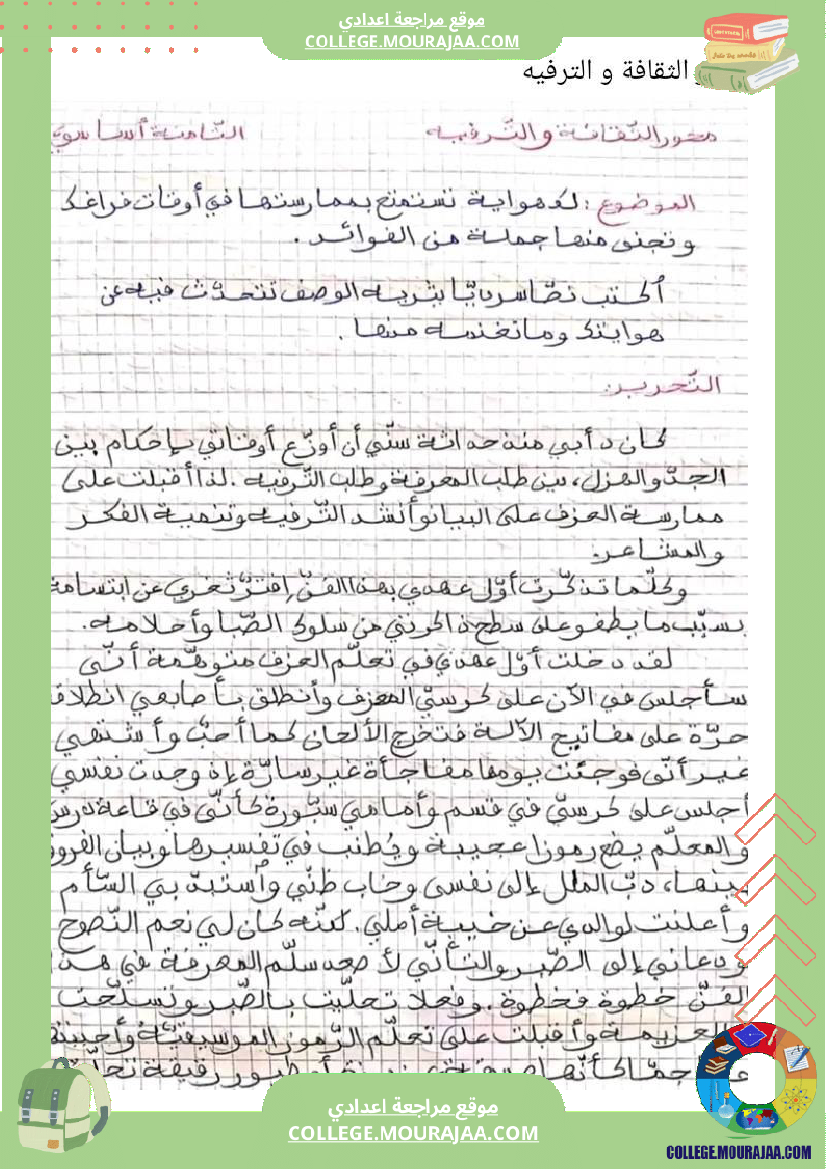 موقع مراجعة اعدادي
COLLEGE.MOURAJAA.COM
الثقافة و الترفيه
محور الثّقافة والتّرفيه
الثّامنة أساسي
الموضوع : لك هواية تستمتع بممارستها في أوقات فراغك
و تجني منها جملة من الفوائد .
أكتب نصّا سرديّا يثريه الوصف تتحدّث فيه عن
هوايتك وما تغنمه منها .
التّحرير:
كان دأبي منذ حداثة سنّي أن أوزّع أوقاتي بإحكام بين
الجدّ والهزل، بين طلب المعرفة وطلب التّرفيه . لذا أقبلت على
ممارسة العزف على البيانو أنشد التّرفيه وتنمية الفكر
والمشاعر.
وكلّما تذكّرت أوّل عهدي بهذا الفنّ إفترّ ثغري عن ابتسامة
بسبب ما يطفو على سطح ذاكرتي من سلوك الصّبا وأحلامه.
لقد دخلت أوّل عهدي في تعلّم العزف متوهّمة أنّي
سأجلس في الآن على كرسيّ المعزف وأنطلق بأصابعي انطلاقة
حرّة على مفاتيح الآلة فتخرج الألحان كما أحبّ وأشتهي
غير أنّي فوجئت يومها مفاجأة غير سارّة إذ وجدت نفسي
أجلس على كرسيّ في قسم وأمامي سبّورة كأنّي في قاعة درس
والمعلّم يضع رموزا عجيبة ويُطنب في تفسيرها وبيان الفروق
بينها، دبّ الملل إلى نفسي وخاب ظنّي وٱستبدّ بي السّأم
وأعلنت لوالدي عن خيبة أملي. لكنّه كان لي نعم النّصوح
ودعاني إلى الصّبر والتّأنّي لأصعد سلّم المعرفة في هذا
الفنّ خطوة فخطوة. وفعلا تحلّيت بالصّبر وتسلّحت
بالعزيمة وأقبلت على تعلّم الرّموز الموسيقيّة وأحببتها
حبّا جمّا كأنّها طيور رقيقة
موقع مراجعة اعدادي
COLLEGE.MOURAJAA.COM
COLLEGE.MOURAJAA.COM